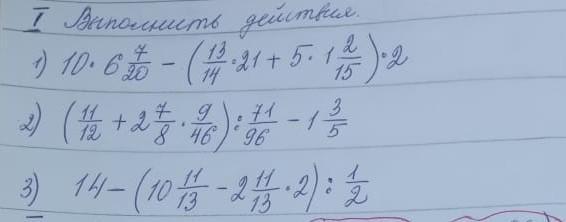 I Выполнить действия.
1) 10 · 6 7/20 − (13/14 · 21 + 5 · 1 2/15) · 2
2) (11/12 + 2 7/8 · 9/46) : 71/96 − 1 3/5
3) 14 − (10 11/13 − 2 11/13 · 2) : 1/2